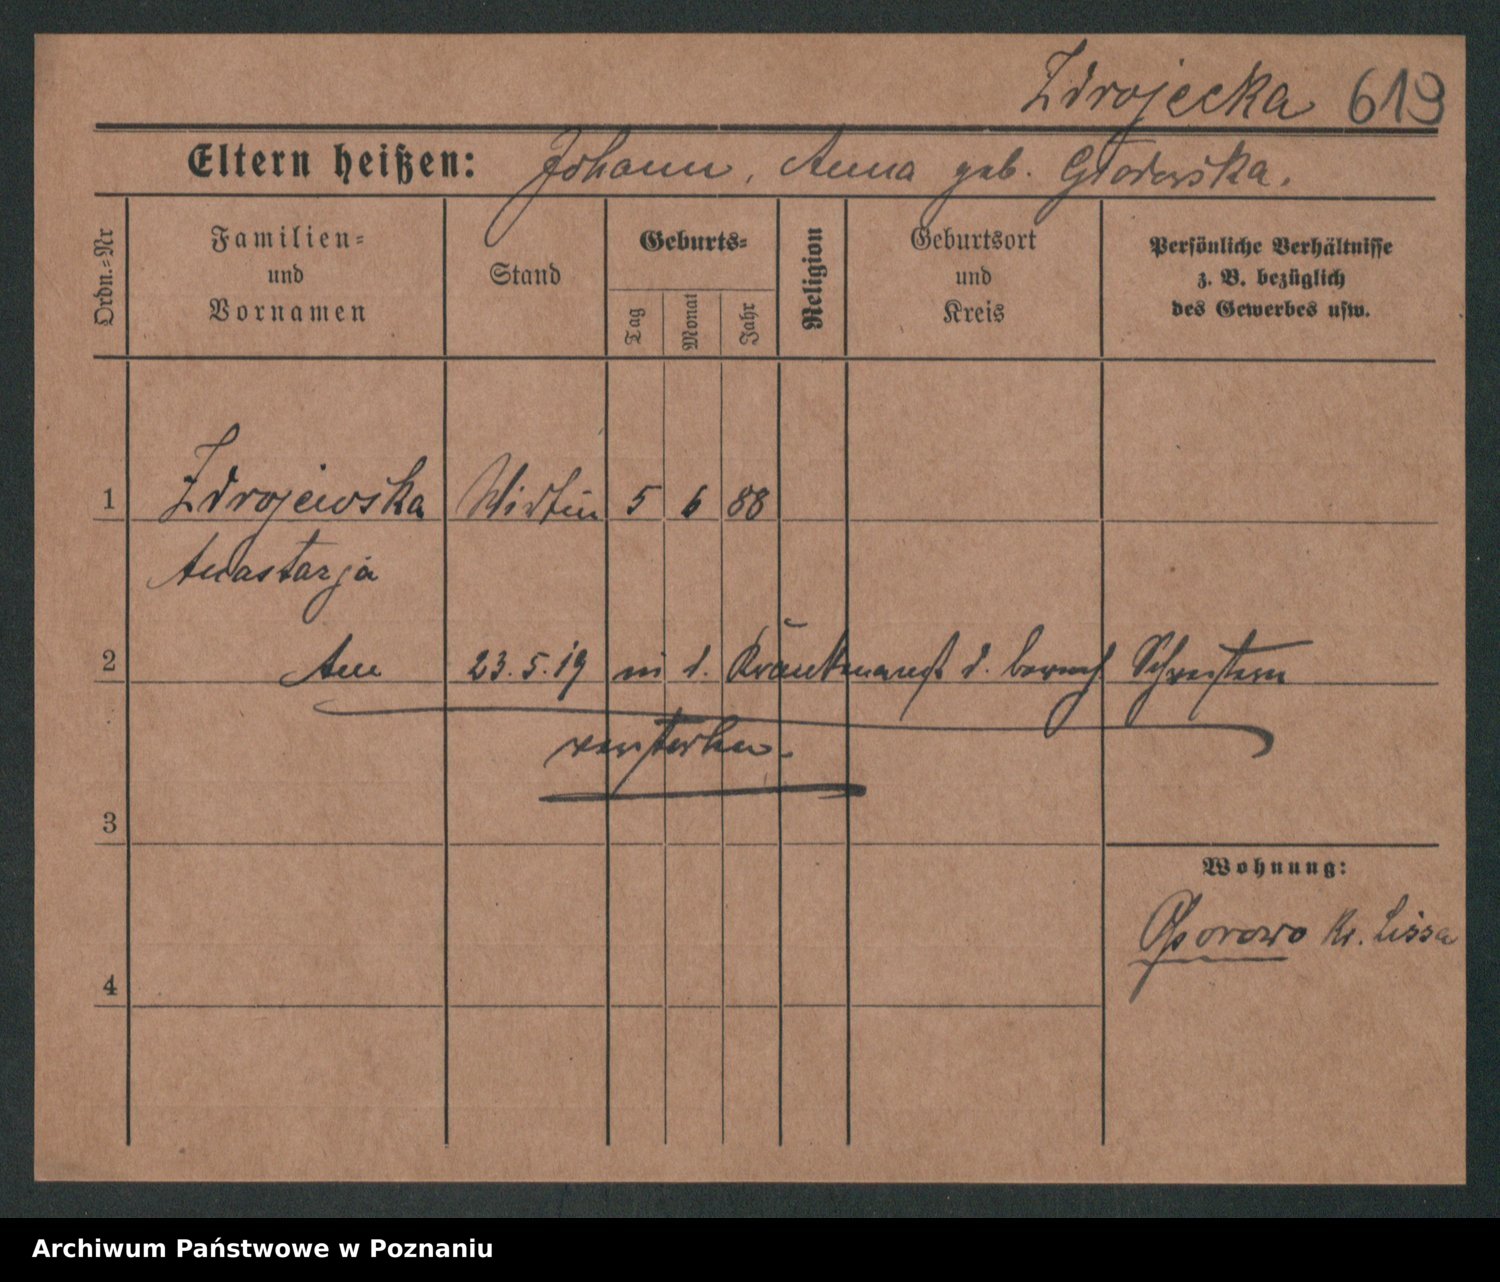 Zdrojecka 619
Eltern heißen: Johann, Anna geb. Głodowska.
Ordn.=Nr
Familien=
und
Vornamen
Stand
Geburts=
Tag
Monat
Jahr
Religion
Geburtsort
und
Kreis
Persönliche Verhältnisse
z. B. bezüglich
des Gewerbes usw.
1 Zdrojewska Wirtin 5 6 88
Anastazja
2 Am 23.5.19 in d. d. barmh. Schwestern
verstorben.
3
Wohnung:
Osorowo Kr. Lissa
4
Archiwum Państwowe w Poznaniu